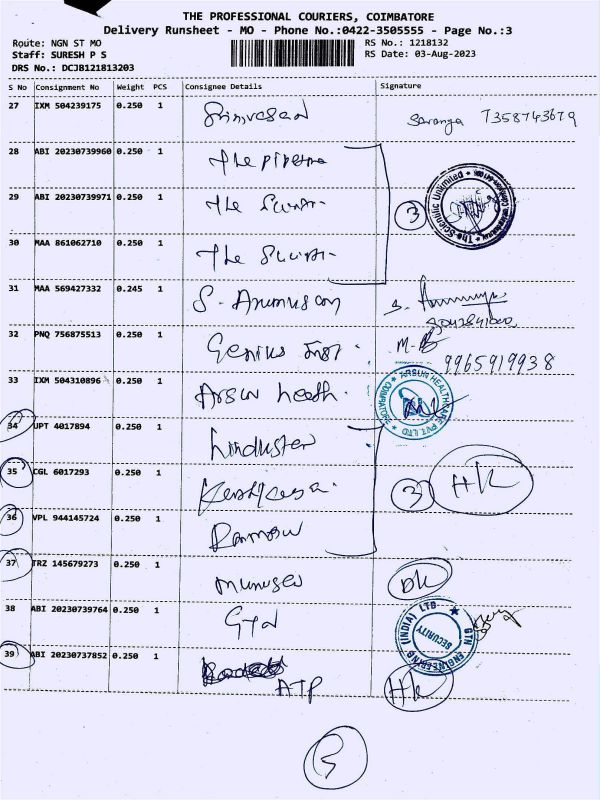 THE PROFESSIONAL COURIERS, COIMBATORE
Delivery Runsheet - MO - Phone No.:0422-3505555 - Page No.:3
Route: NGN ST MO
RS No.: 1218132
Staff: SURESH P S
RS Date: 03-Aug-2023
DRS No.: DCJB121813203
S No Consignment No Weight PCS Consignee Details Signature
27 IXM 504239175 0.250 1 Srinivasan Saranya 7358743679
28 ABI 20230739960 0.250 1 The
29 ABI 20230739971 0.250 1 The 3
The Scientific Unlimited
30 MAA 861062710 0.250 1 The
31 MAA 569427332 0.245 1 S. S.
32 PNQ 756875513 0.250 1 Genius M. 9965919938
33 IXM 504310896 0.250 1 Arsun heath.
ARSUN HEALTHCARE PVT LTD COIMBATORE
34 UPT 4017894 0.250 1
35 CGL 6017293 0.250 1 3 HK
36 VPL 944145724 0.250 1
37 TRZ 145679273 0.250 1
38 ABI 20230739764 0.250 1 GTN
GTN ENGINEERING (INDIA) LTD SECURITY
39 ABI 20230737852 0.250 1 ATP HK